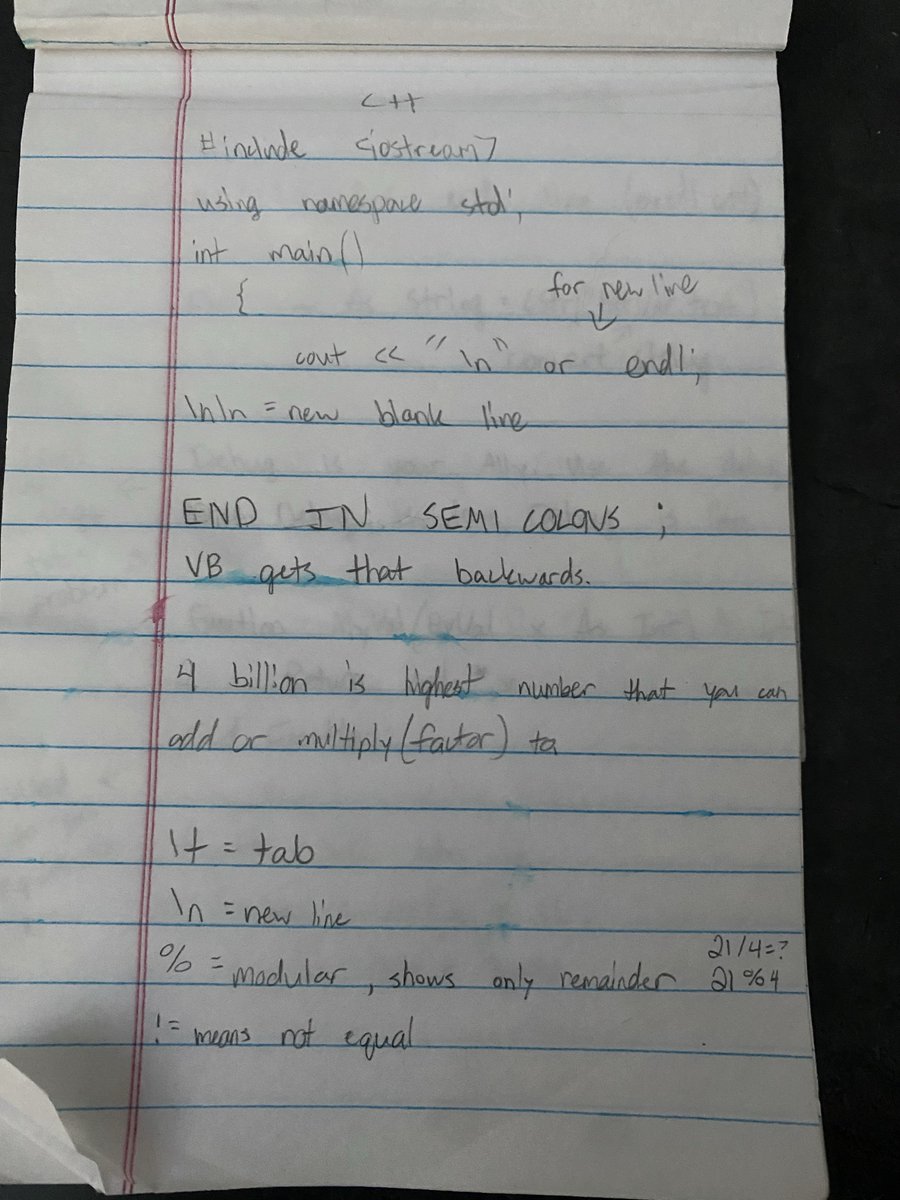 C++
#include <iostream>
using namespace std;
int main()
{
for new line
cout << "\n" or endl;
\n\n = new blank line
END IN SEMI COLONS ;
VB gets that backwards.
4 billion is highest number that you can
add or multiply (factor) to
\t = tab
\n = new line
21/4=?
% = modular, shows only remainder 21%4
!= means not equal